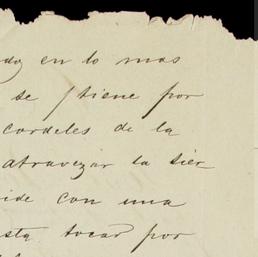 en lo mas
se tiene por
cordeles de la
atravezar la sier
con una
tocar por